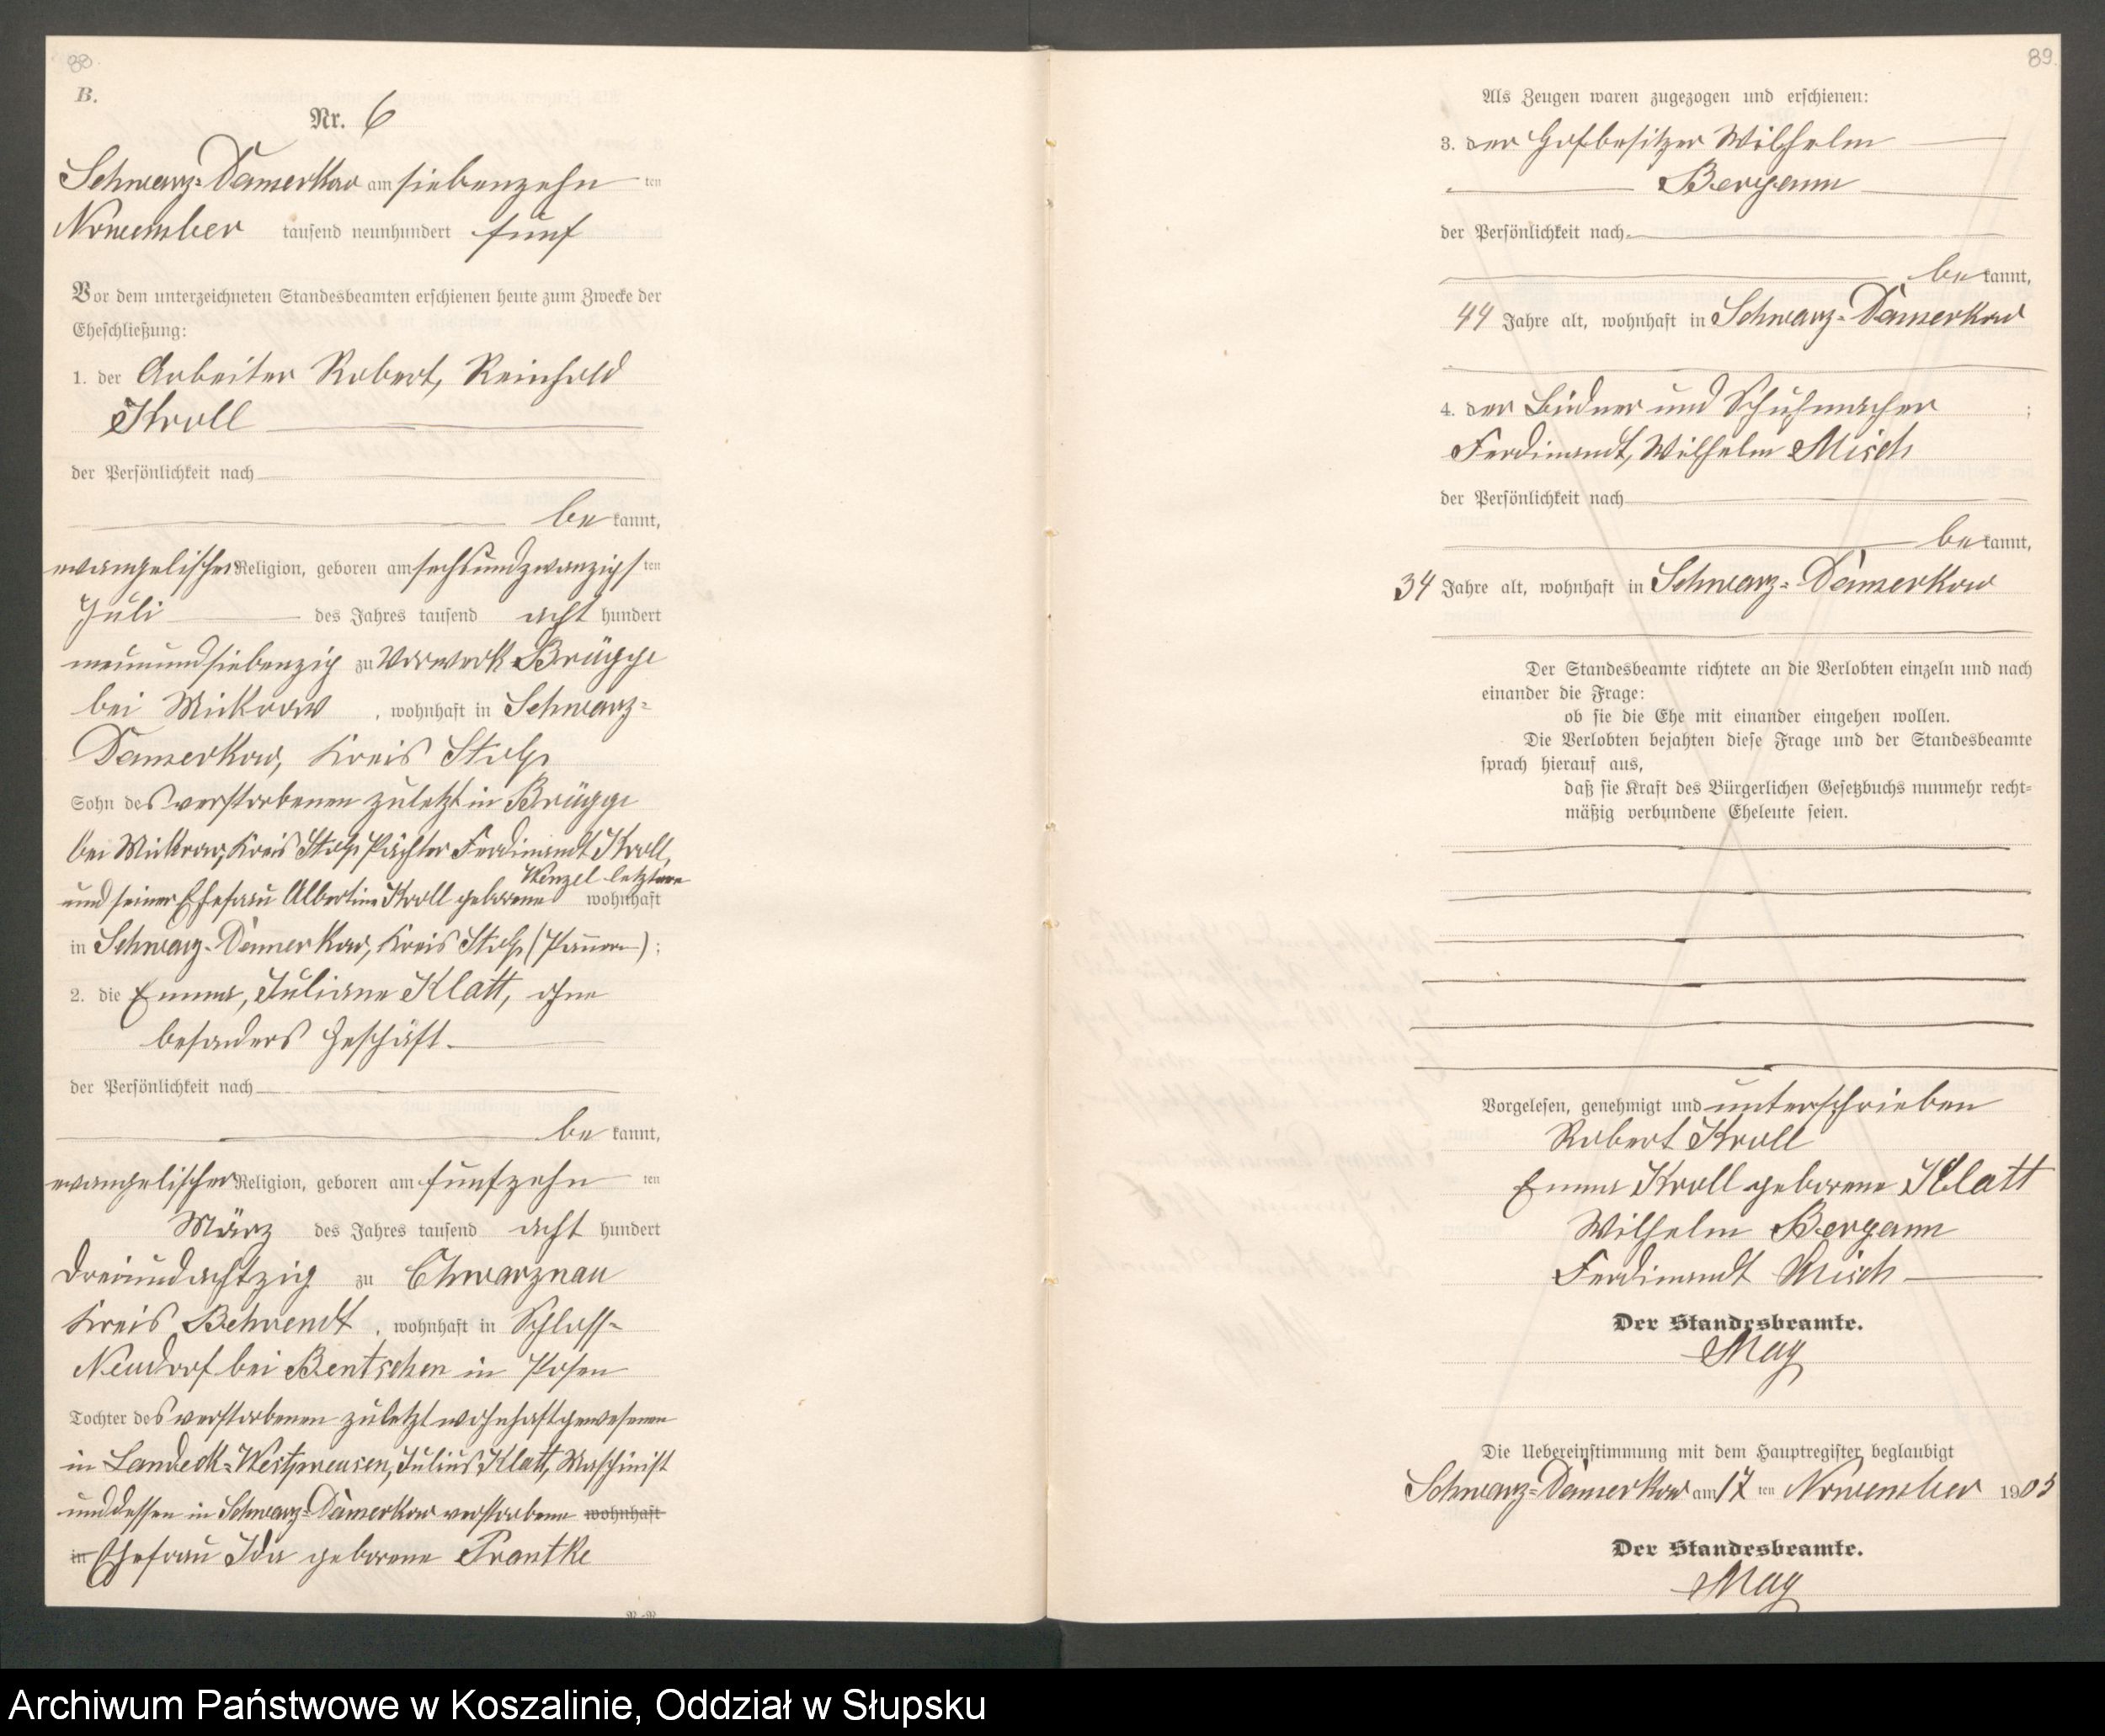 88.
B.
Nr. 6
Schwarz-Damerkow am siebenzehn ten
November tausend neunhundert fünf
Vor dem unterzeichneten Standesbeamten erschienen heute zum Zwecke der
Eheschließung:
1. der Arbeiter Robert, Reinhold
Kroll
der Persönlichkeit nach
be kannt,
evangelischer Religion, geboren am sechsundzwanzigsten
Juli des Jahres tausend acht hundert
neunundsiebenzig zu Vorwerk Brügge
bei Mickrow, wohnhaft in Schwarz-
Damerkow, Kreis Stolp
Sohn des verstorbenen zuletzt in Brügge
bei Mickrow, Kreis Stolp Pächter Ferdinandt Kroll,
und seiner Ehefrau Albertine Kroll geborene Wenzel letztere wohnhaft
in Schwarz-Damerkow, Kreis Stolp (Pommern);
2. die Emma, Juliane Klatt, ohne
besonders Geschäft.
der Persönlichkeit nach
be kannt,
evangelischer Religion, geboren am fünfzehn ten
März des Jahres tausend acht hundert
dreiundachtzig zu Chwarznau
Kreis Behrendt, wohnhaft in Schloss-
Neudorf bei Bentschen in Posen
Tochter des verstorbenen zuletzt wohnhaft gewesenen
in Landeck-Westpreusen, Julius Klatt, Maschinist
und dessen in Schwarz-Damerkow verstorbene wohnhaft
in Ehefrau Ida geborene Prantke
89.
Als Zeugen waren zugezogen und erschienen:
3. der Hofbesitzer Wilhelm
Bergann
der Persönlichkeit nach
be kannt,
44 Jahre alt, wohnhaft in Schwarz-Damerkow
4. der Büdner und Schuhmacher ;
Ferdinandt, Wilhelm Misch
der Persönlichkeit nach
be kannt,
34 Jahre alt, wohnhaft in Schwarz-Damerkow
Der Standesbeamte richtete an die Verlobten einzeln und nach
einander die Frage:
ob sie die Ehe mit einander eingehen wollen.
Die Verlobten bejahten diese Frage und der Standesbeamte
sprach hierauf aus,
daß sie Kraft des Bürgerlichen Gesetzbuchs nunmehr recht-
mäßig verbundene Eheleute seien.
Vorgelesen, genehmigt und unterschrieben
Robert Kroll
Emma Kroll geborene Klatt
Wilhelm Bergann
Ferdinandt Misch
Der Standesbeamte.
May
Die Uebereinstimmung mit dem Hauptregister beglaubigt
Schwarz-Damerkow am 17 ten November 1905
Der Standesbeamte.
May
Archiwum Państwowe w Koszalinie, Oddział w Słupsku